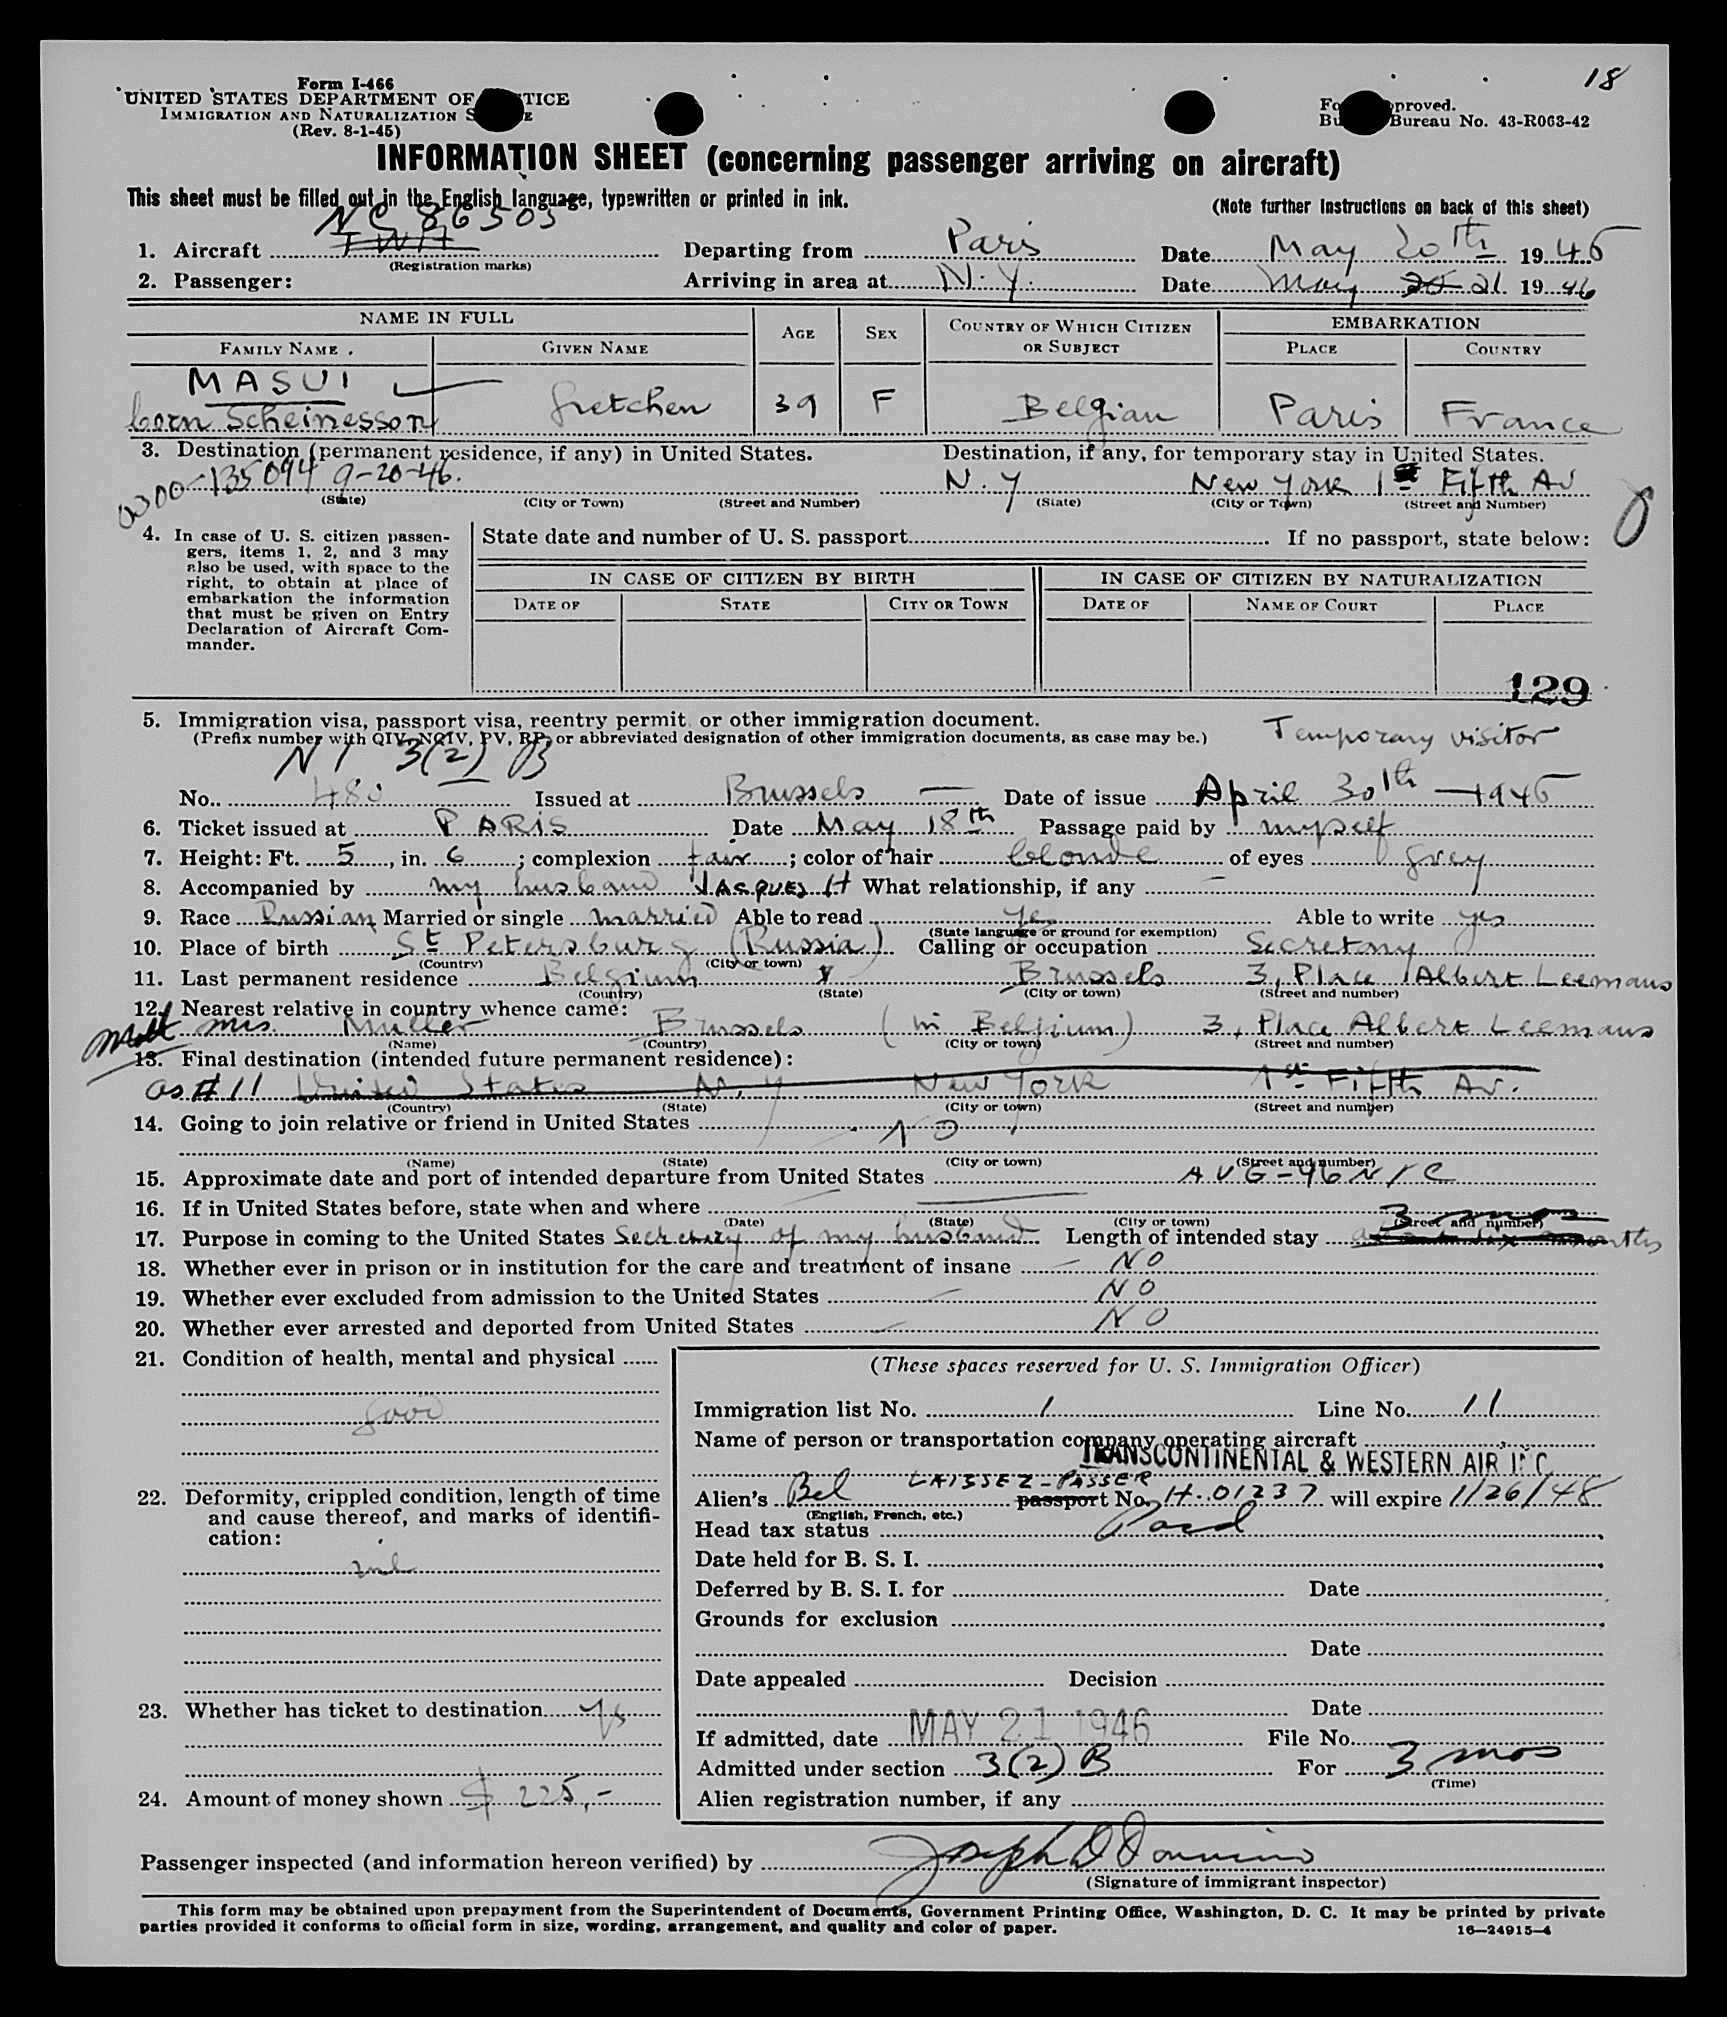 18
Form I-466
UNITED STATES DEPARTMENT OF TICE
IMMIGRATION AND NATURALIZATION S E
(Rev. 8-1-45)
Fo pproved.
Bu Bureau No. 43-R063-42
INFORMATION SHEET (concerning passenger arriving on aircraft)
This sheet must be filled out in the English language, typewritten or printed in ink.
(Note further instructions on back of this sheet)
NC 86505
1. Aircraft TWA Departing from Paris Date May 20th 1946
(Registration marks)
2. Passenger: Arriving in area at N.Y. Date May 20 21 1946
NAME IN FULL AGE SEX COUNTRY OF WHICH CITIZEN OR SUBJECT EMBARKATION
FAMILY NAME GIVEN NAME PLACE COUNTRY
MASUI
born Scheinesson Gretchen 39 F Belgian Paris France
3. Destination (permanent residence, if any) in United States. Destination, if any, for temporary stay in United States.
0300-135094 9-20-46. N.Y New York 1st Fifth Av
(State) (City or Town) (Street and Number) (State) (City or Town) (Street and Number)
4. In case of U. S. citizen passengers, items 1, 2, and 3 may also be used, with space to the right, to obtain at place of embarkation the information that must be given on Entry Declaration of Aircraft Commander.
State date and number of U. S. passport If no passport, state below:
IN CASE OF CITIZEN BY BIRTH IN CASE OF CITIZEN BY NATURALIZATION
DATE OF STATE CITY OR TOWN DATE OF NAME OF COURT PLACE
129
5. Immigration visa, passport visa, reentry permit or other immigration document.
(Prefix number with QIV, NQIV, PV, RP, or abbreviated designation of other immigration documents, as case may be.)
Temporary visitor
NI 3(2) B
No. 480 Issued at Brussels Date of issue April 30th 1946
6. Ticket issued at PARIS Date May 18th Passage paid by myself
7. Height: Ft. 5, in. 6; complexion fair; color of hair blonde of eyes grey
8. Accompanied by my husband JACQUES H What relationship, if any -
9. Race Russian Married or single married Able to read yes Able to write yes
(State language or ground for exemption)
10. Place of birth St Petersburg (Russia) Calling or occupation Secretary
(Country) (City or town)
11. Last permanent residence Belgium Brussels 3, Place Albert Leemans
(Country) (State) (City or town) (Street and number)
12. Nearest relative in country whence came:
Mrs Muller Brussels (in Belgium) 3, Place Albert Leemans
(Name) (Country) (City or town) (Street and number)
13. Final destination (intended future permanent residence):
as #11 United States N.Y New York 1st Fifth Av.
(Country) (State) (City or town) (Street and number)
14. Going to join relative or friend in United States NO
(Name) (State) (City or town) (Street and number)
15. Approximate date and port of intended departure from United States AUG-46 NYC
16. If in United States before, state when and where
(Date) (State) (City or town) (Street and number)
3 mos
17. Purpose in coming to the United States Secretary of my husband Length of intended stay about six months
18. Whether ever in prison or in institution for the care and treatment of insane NO
19. Whether ever excluded from admission to the United States NO
20. Whether ever arrested and deported from United States NO
21. Condition of health, mental and physical
good
22. Deformity, crippled condition, length of time and cause thereof, and marks of identification:
nil
23. Whether has ticket to destination yes
24. Amount of money shown $ 225,-
(These spaces reserved for U. S. Immigration Officer)
Immigration list No. 1 Line No. 11
Name of person or transportation company operating aircraft
TRANSCONTINENTAL & WESTERN AIR INC
LAISSEZ-PASSER
Alien's Bel passport No. H-01237 will expire 1/26/48
(English, French, etc.)
Head tax status Paid
Date held for B. S. I.
Deferred by B. S. I. for Date
Grounds for exclusion
Date
Date appealed Decision
Date
If admitted, date MAY 21 1946 File No.
Admitted under section 3(2) B For 3 mos
(Time)
Alien registration number, if any
Passenger inspected (and information hereon verified) by Joseph D
(Signature of immigrant inspector)
This form may be obtained upon prepayment from the Superintendent of Documents, Government Printing Office, Washington, D. C. It may be printed by private
parties provided it conforms to official form in size, wording, arrangement, and quality and color of paper.
16—24915-4